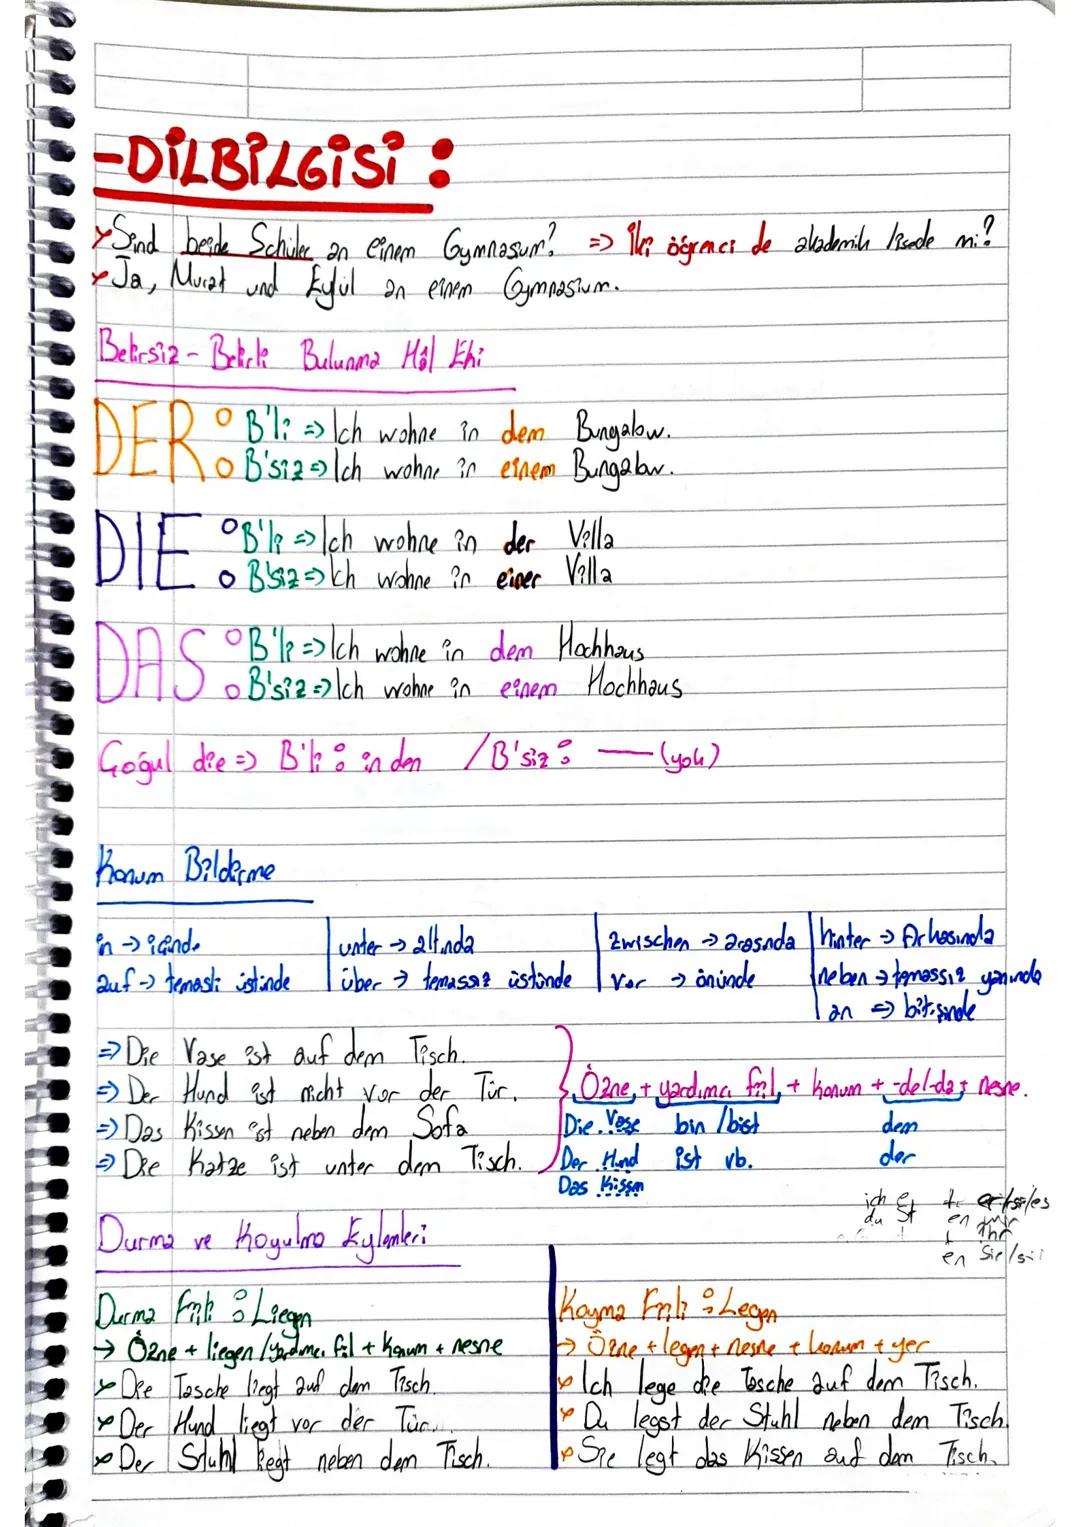 -DİLBİLGİSİ :
Sind beide Schüler an einem Gymnasum? => İki öğrenci de akademik lisede mi?
Ja, Murat und Eylül an einem Gymnasium.
Belirsiz - Belirli Bulunma Hâl Eki
DER : B'li => Ich wohne in dem Bungalow.
B'siz => Ich wohne in einem Bungalow.
DIE : B'li => Ich wohne in der Villa
B'siz => Ich wohne in einer Villa
DAS : B'li => Ich wohne in dem Hochhaus
B'siz => Ich wohne in einem Hochhaus
Çoğul die => B'li : in den / B'siz : — (yok)
Konum Bildirme
in → içinde
auf → temaslı üstünde
unter → altında
über → temassız üstünde
zwischen → arasında
vor → önünde
hinter → Arkasında
neben → temassız yanında
an => bitişinde
=> Die Vase ist auf dem Tisch.
=> Der Hund ist nicht vor der Tür.
=> Das Kissen ist neben dem Sofa
=> Die Katze ist unter dem Tisch.
Özne + yardımcı fiil + konum + -del-da + nesne.
Die Vase bin / bist dem
Der Hund ist vb. der
Das Kissen
ich e t er/sie/es
du st en wir
t ihr
en Sie/sie
Durma ve Koyulma Eylemleri
Durma Fiili : Liegen
→ Özne + liegen / yardımcı fiil + Konum + nesne
Die Tasche liegt auf dem Tisch.
Der Hund liegt vor der Tür.
Der Stuhl liegt neben dem Tisch.
Koyma Fiili : Legen
→ Özne + legen + nesne + konum + yer
Ich lege die Tasche auf dem Tisch.
Du legst der Stuhl neben dem Tisch.
Sie legt das Kissen auf dem Tisch.